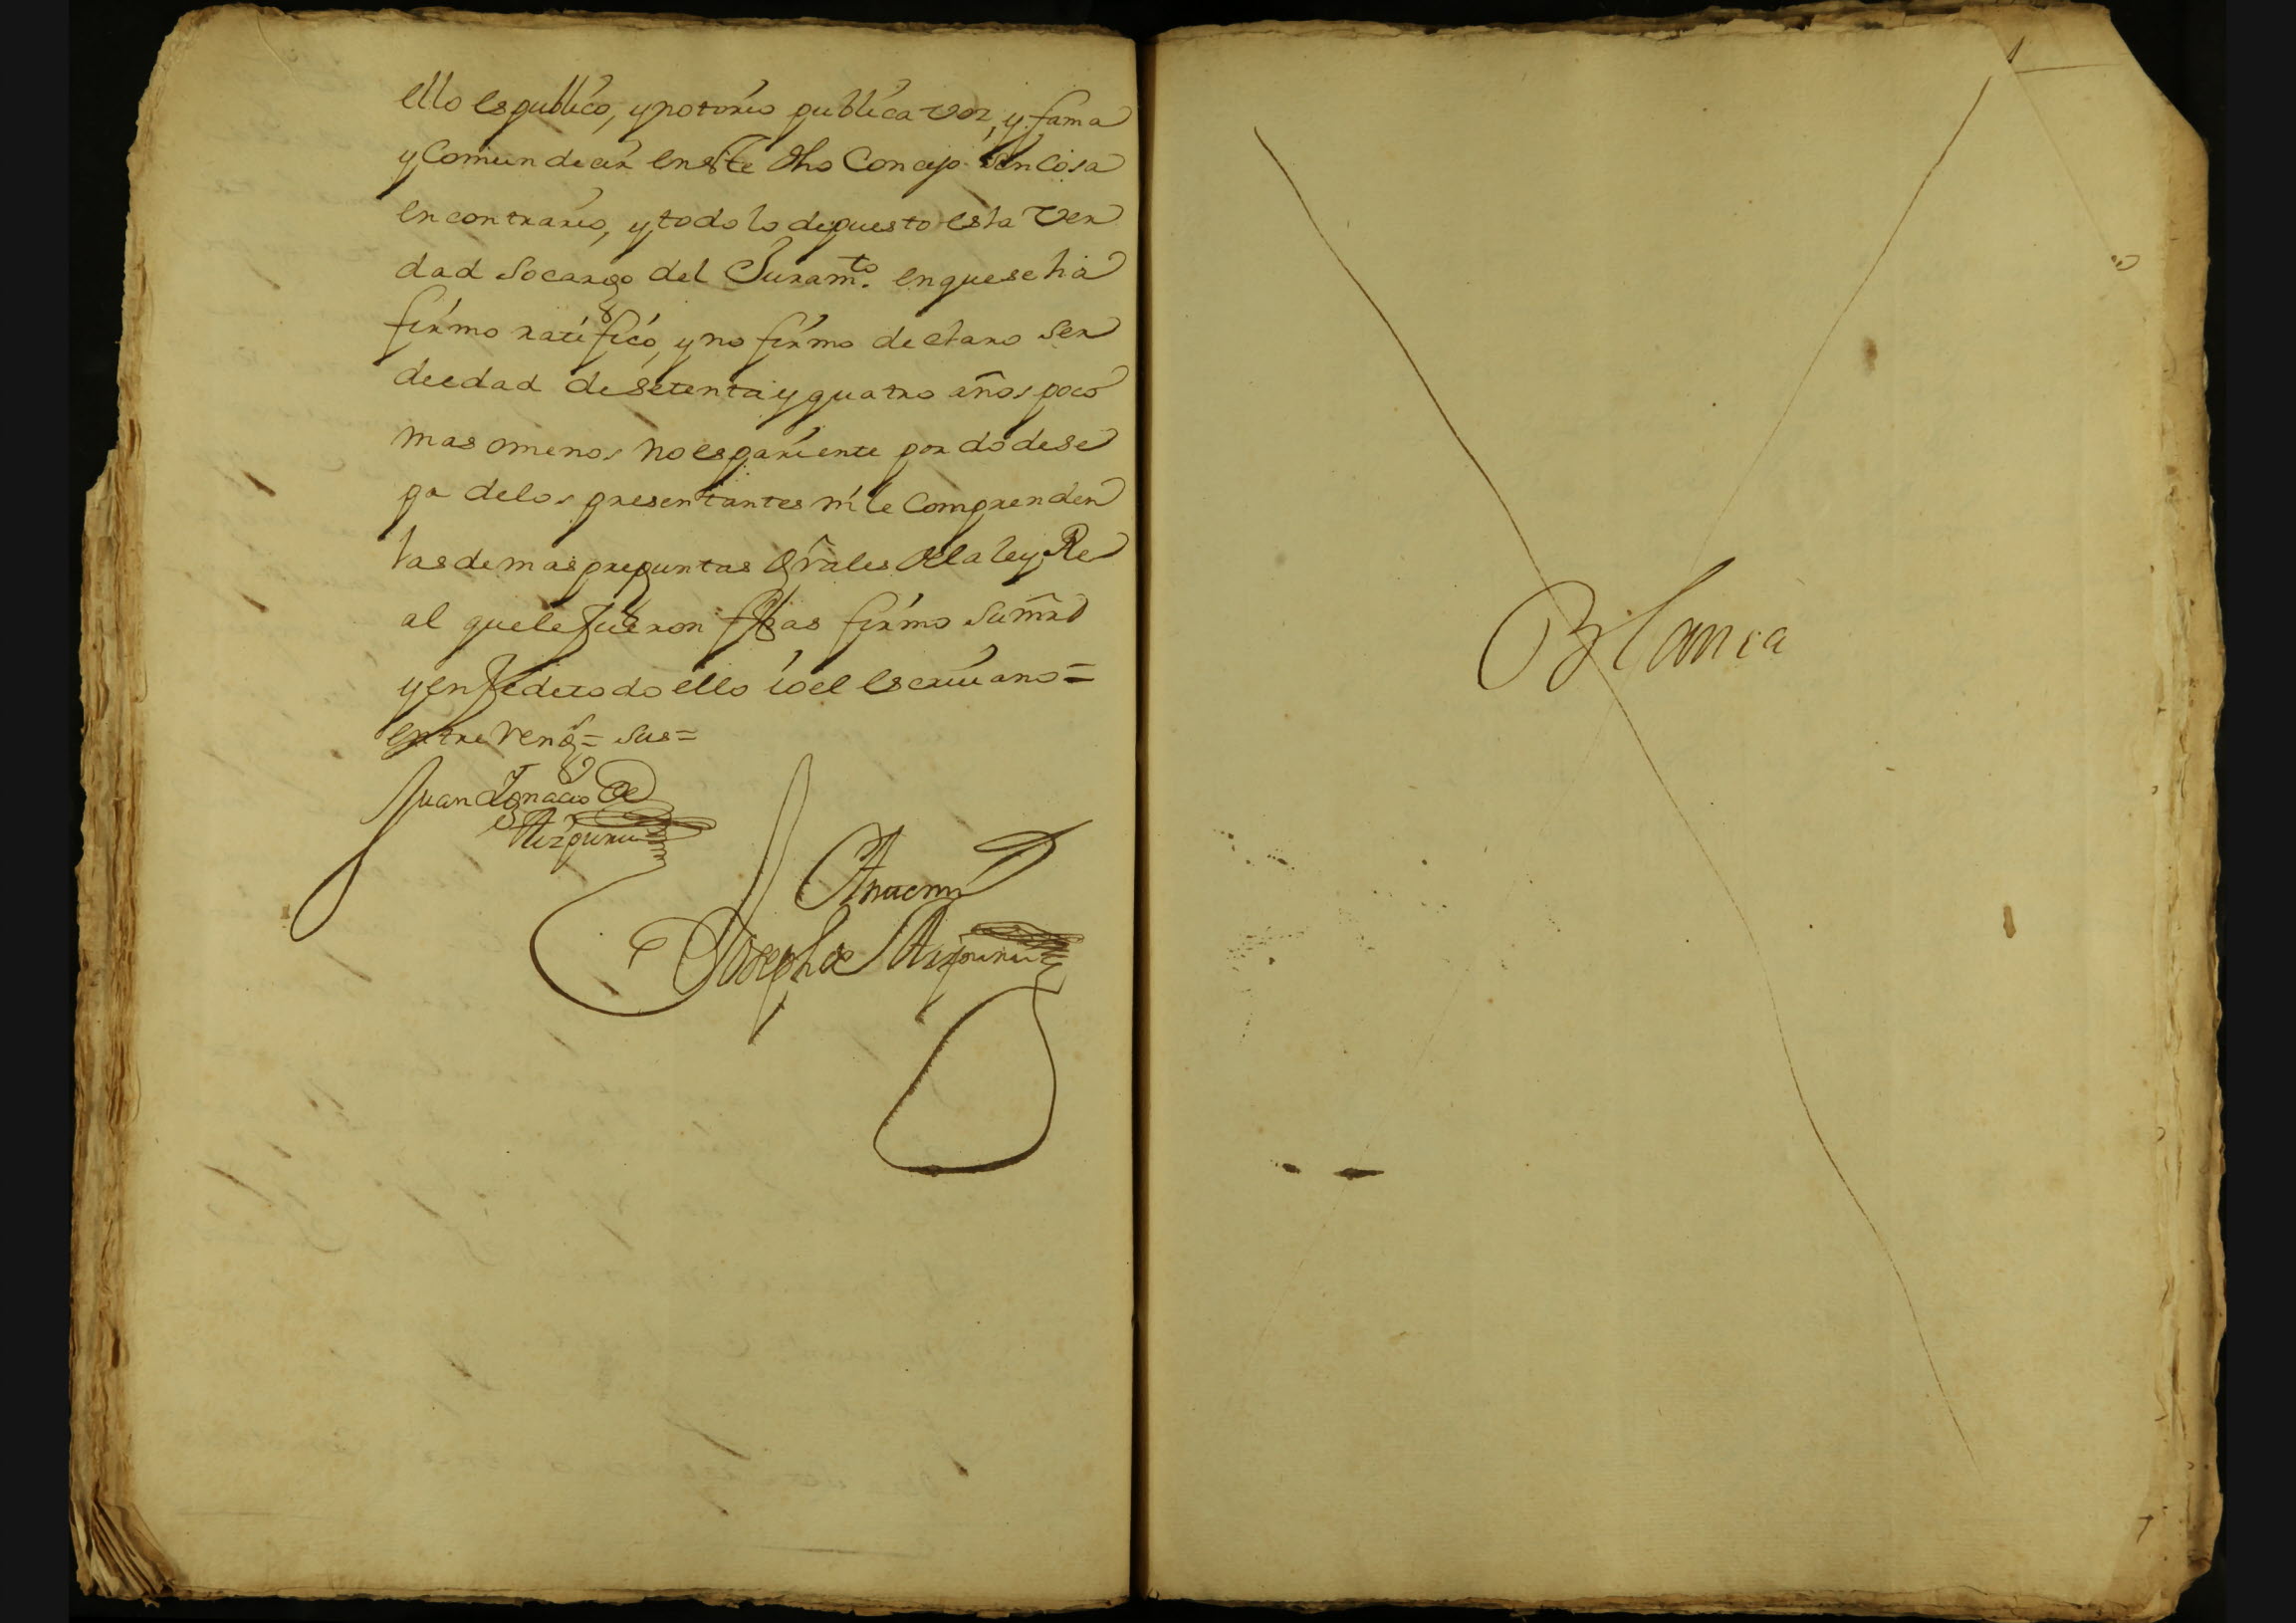 ello es publico, y notorio publica voz, y fama
y Comun decir en este dho Concejo sin Cosa
en contrario, y todo lo depuesto es la ver
dad so cargo del Juram.to en que se ha
firmo ratifico, y no firmo declaro ser
de edad de setenta y quatro años poco
mas o menos no es pariente por do de se
pa de los presentantes ni le Comprenden
las demas preguntas grãles de la ley Re
al que le fueron fhas firmo su mrd
y en fe de todo ello io el escriuano =
entre reng.s = sus =
Juan Ignacio de
Aizpuru
Ante mi
Joseph de Aizpuru
Blanca